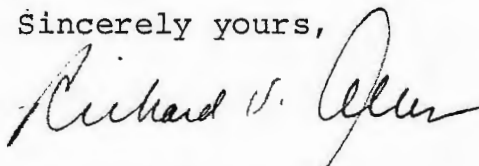 Sincerely yours,
Richard V. Allen